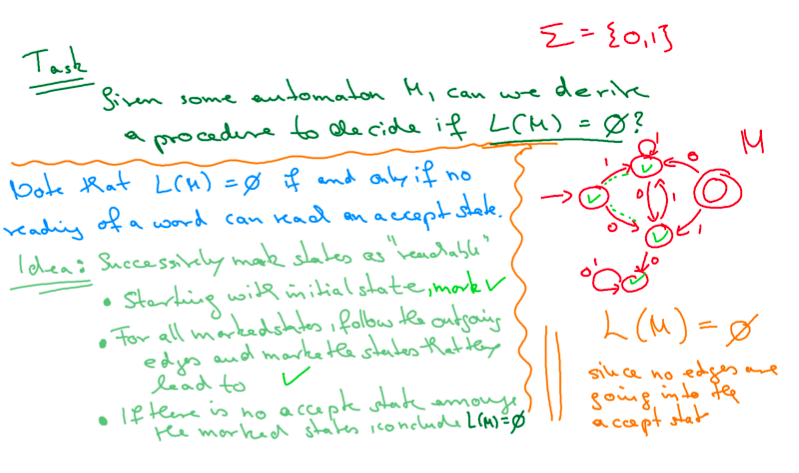 Σ = {0,1}
Task
Given some automaton M, can we derive
a procedure to decide if L(M) = ∅?
Note that L(M) = ∅ if and only if no
reading of a word can reach an accept state.
Idea: Successively mark states as "reachable"
• Starting with initial state, mark ✓
• For all marked states, follow the outgoing
edges and mark the states that they
lead to ✓
• If there is no accept state amoung
the marked states, conclude L(M) = ∅
M
1
1
0
0
1
0
1
0
0
0
1
L(M) = ∅
since no edges are
going into the
accept stat